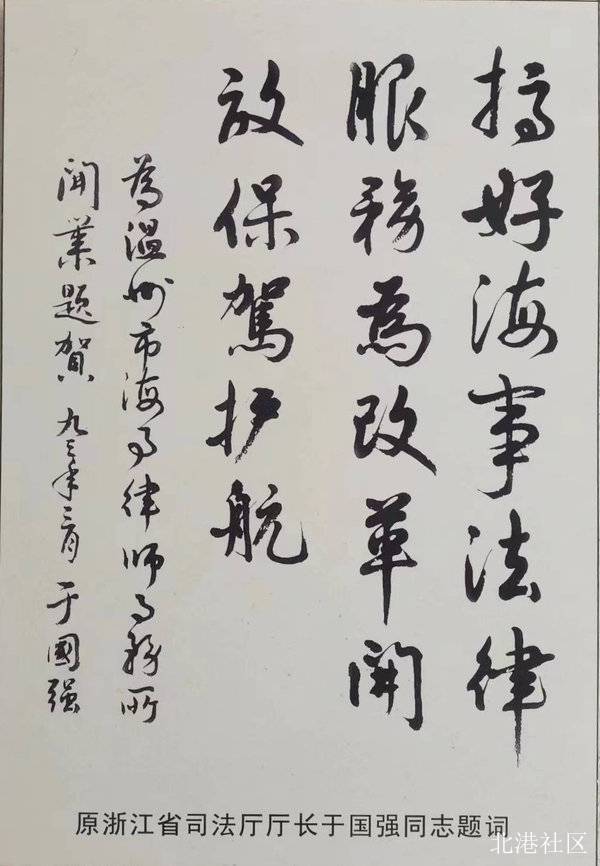 搞好海事法律
服務為改革開
放保駕护航
為温州市海事律师事務所
開業题賀 九三年二月 于國强
原浙江省司法厅厅长于国强同志题词
北港社区